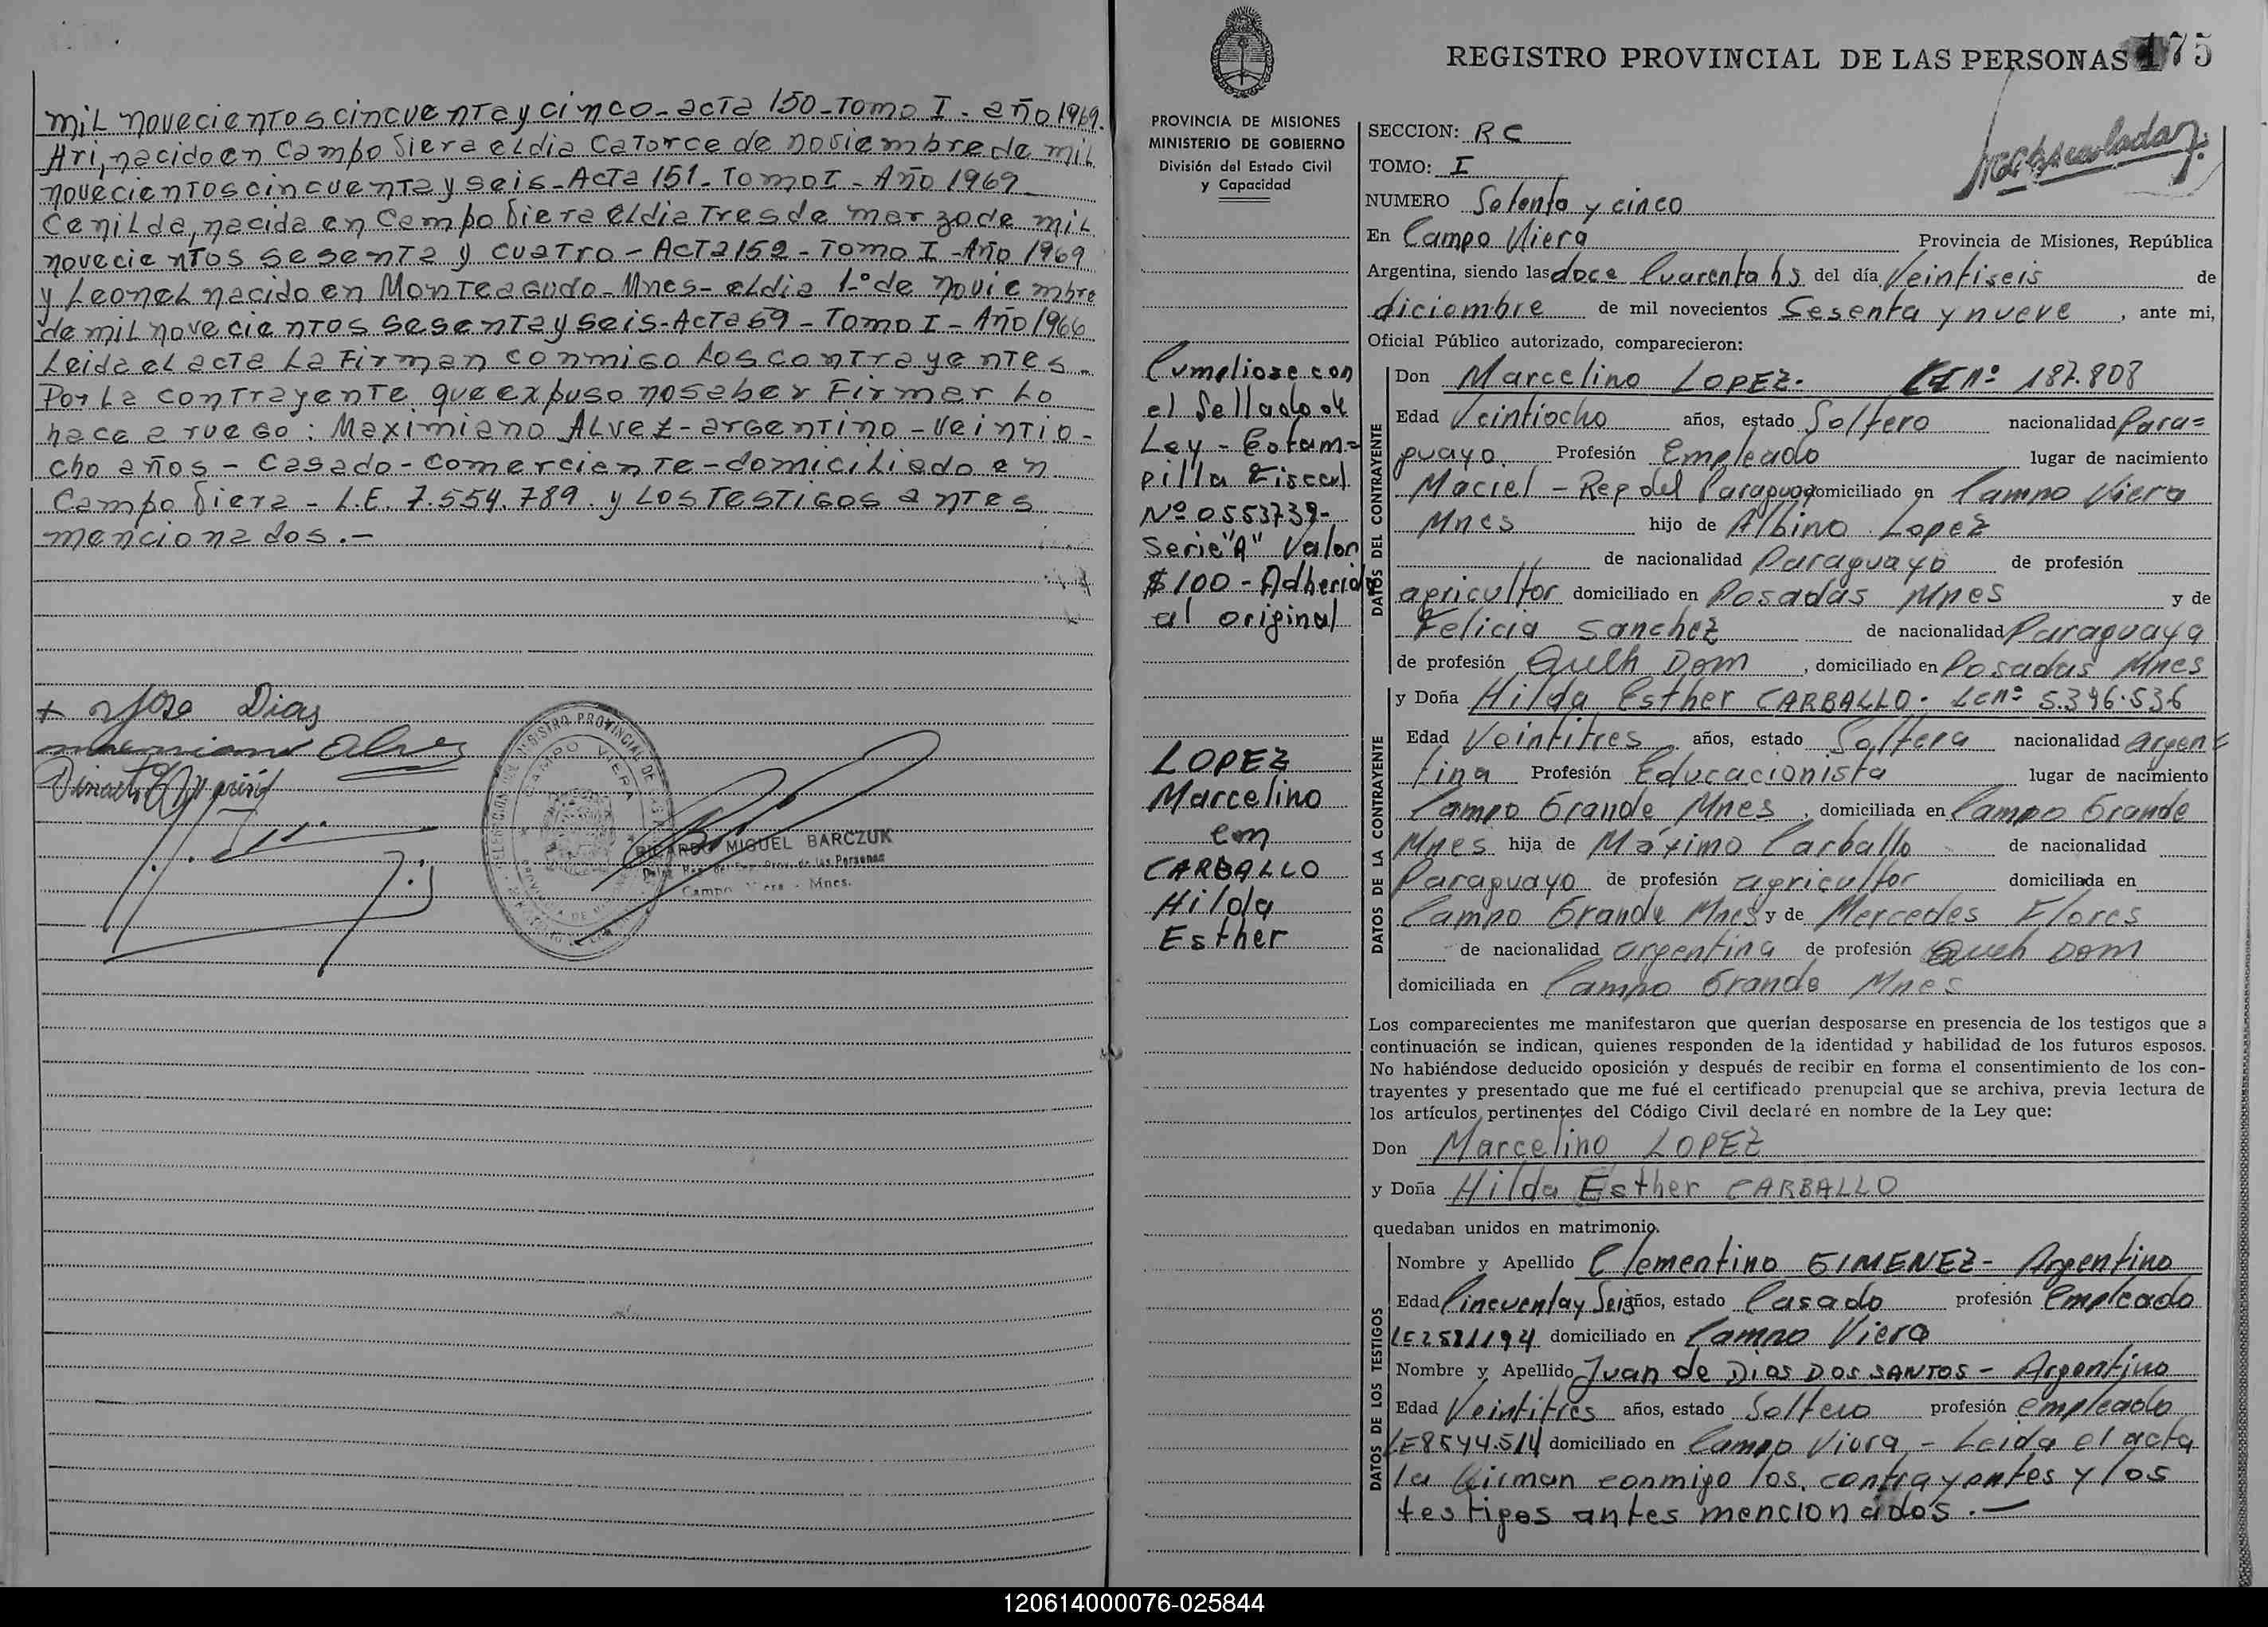 mil novecientos cincuenta y cinco - acta 150 - Tomo I - año 1969.
Ari, nacido en Campo Viera el dia Catorce de noviembre de mil
novecientos cincuenta y seis - Acta 151 - Tomo I - Año 1969
Cenilda, nacida en Campo Viera el dia Tres de marzo de mil
novecientos sesenta y cuatro - Acta 152 - Tomo I - Año 1969
y Leonel nacido en Monteagudo - Mnes - el dia 1.º de noviembre
de mil novecientos sesenta y seis - Acta 59 - Tomo I - Año 1966
Leida el acta la firman conmigo los contrayentes.
Por la contrayente que expuso no saber firmar lo
hace a ruego: Maximiano ALVEZ - argentino - veintio-
cho años - casado - comerciante - domiciliado en
Campo Viera - L.E. 7.554.789. y los testigos antes
mencionados.-
+ Jose Dias
REGISTRO PROVINCIAL DE LAS
CAMPO VIERA
RICARDO MIGUEL BARCZUK
Deleg. Reg. Prov. de las Personas
Campo Viera - Mnes.
REGISTRO PROVINCIAL DE LAS PERSONAS 175
PROVINCIA DE MISIONES
MINISTERIO DE GOBIERNO
División del Estado Civil
y Capacidad
Cumpliose con
el Sellado de
Ley - Estam=
pilla Fiscal
Nº 0553739-
Serie "A" Valor
$100 - Adherida
al original
LOPEZ
Marcelino
con
CARBALLO
Hilda
Esther
SECCION: RC
TOMO: I
NUMERO Setenta y cinco
En Campo Viera Provincia de Misiones, República
Argentina, siendo las doce Cuarenta hs del día Veintiseis de
diciembre de mil novecientos Sesenta y nueve, ante mi,
Oficial Público autorizado, comparecieron:
DATOS DEL CONTRAYENTE
Don Marcelino LOPEZ. nº 187.808
Edad Veintiocho años, estado Soltero nacionalidad Para=
guayo. Profesión Empleado lugar de nacimiento
Maciel - Rep del Paraguay domiciliado en Campo Viera
Mnes hijo de Albino Lopez
de nacionalidad Paraguayo de profesión
agricultor domiciliado en Posadas Mnes y de
Felicia Sanchez de nacionalidad Paraguaya
de profesión Queh Dom, domiciliado en Posadas Mnes
DATOS DE LA CONTRAYENTE
y Doña Hilda Esther CARBALLO. LC nº 5.396.536
Edad Veintitres años, estado Soltera nacionalidad argen=
tina Profesión Educacionista lugar de nacimiento
Campo Grande Mnes, domiciliada en Campo Grande
Mnes hija de Máximo Carballo de nacionalidad
Paraguayo de profesión agricultor domiciliada en
Campo Grande Mnes y de Mercedes Flores
de nacionalidad argentina de profesión Queh Dom
domiciliada en Campo Grande Mnes
Los comparecientes me manifestaron que querían desposarse en presencia de los testigos que a
continuación se indican, quienes responden de la identidad y habilidad de los futuros esposos.
No habiéndose deducido oposición y después de recibir en forma el consentimiento de los con-
trayentes y presentado que me fué el certificado prenupcial que se archiva, previa lectura de
los artículos pertinentes del Código Civil declaré en nombre de la Ley que:
Don Marcelino LOPEZ
y Doña Hilda Esther CARBALLO
quedaban unidos en matrimonio.
DATOS DE LOS TESTIGOS
Nombre y Apellido Clementino GIMENEZ - Argentino
Edad Cincuenta y Seis años, estado Casado profesión Empleado
LE 2581194 domiciliado en Campo Viera
Nombre y Apellido Juan de Dios DOS SANTOS - Argentino
Edad Veintitres años, estado Soltero profesión empleado
LE 8544.514 domiciliado en Campo Viera - Leida el acta
la firman conmigo los contrayentes y los
testigos antes mencionados.-
120614000076-025844